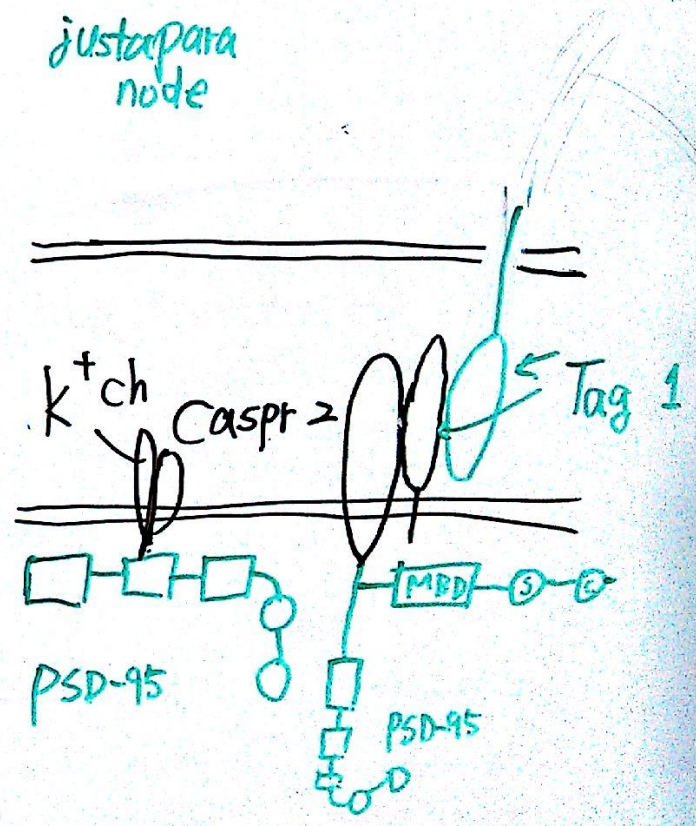 justapara
node
K+ ch
Caspr 2
Tag 1
MBD
S
PSD-95
PSD-95